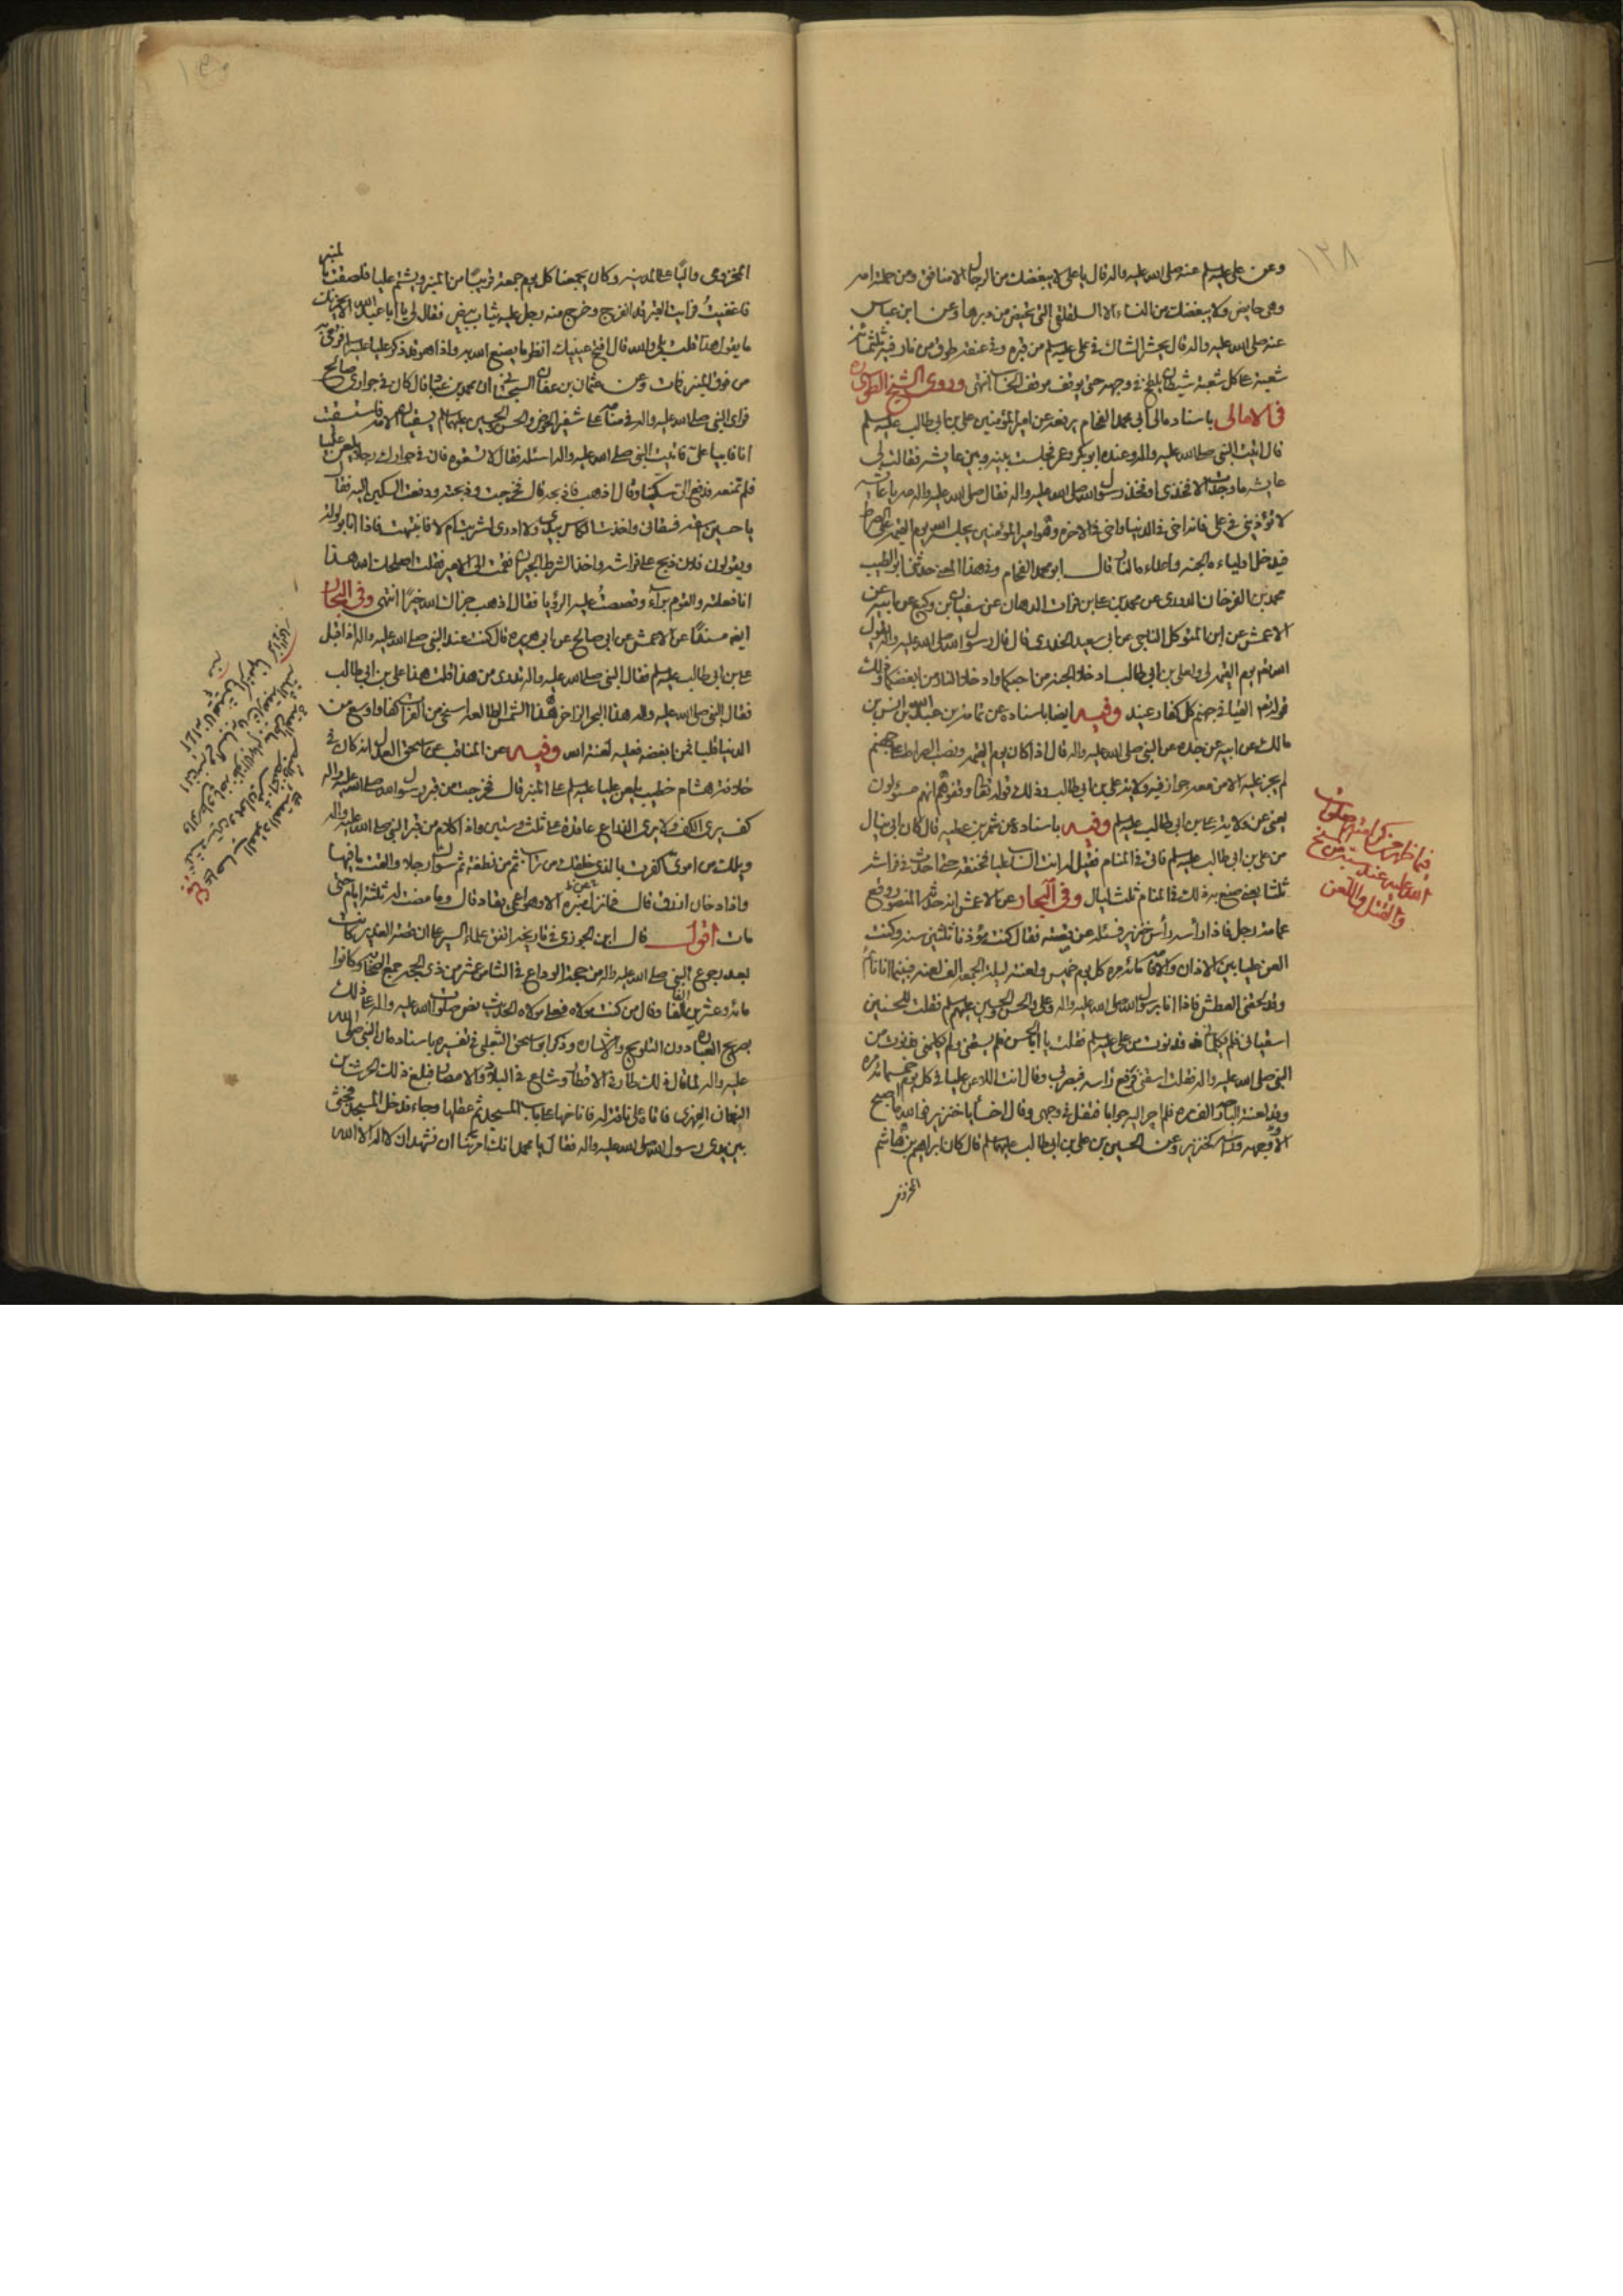 ١٢٨
وعن علي عليه السلم عنه صلى الله عليه واله قال يا علي لا يبغضك من الرجال الا منافق ومن حملته امه
وهي حايض ولا يبغضك من النساء الا السلقلقي التي تحيض من دبرها وعن ابن عباس
عنه صلى الله عليه واله قال يحشر الشاك في علي عليه السلم من قبره وفي عنقه طوق من نار فيه ثلثمائة
شعبة على كل شعبة شيطان يلطخ في وجهه حتى يوقف موقف الحساب انتهى وروى الشيخ الطوسي ره
في الامالي باسناده الى ابي محمد الفحام يرفعه عن امير المؤمنين علي بن ابي طالب عليه السلم
قال اتيت النبي صلى الله عليه واله وعنده ابو بكر وعمر فجلست بينه وبين عايشه فقالت لي
عايشه ما وجدت الا فخذي او فخذ رسول الله صلى الله عليه واله فقال صلى الله عليه واله مه يا عايشه
لا تؤذيني في علي فانه اخي في الدنيا واخي في الاخرة وهو امير المؤمنين يجلسه الله يوم القيمة على الصراط
فيدخل اولياءه الجنه واعداءه النار قال ابو محمد الفحام وفي هذا المعنى حدثني ابو الطيب
محمد بن الفرخان الدوري عن محمد بن علي بن فرات الدهان عن سفيان بن وكيع عن ابيه عن
الاعمش عن ابن المتوكل الناجي عن ابي سعيد الخدري قال قال رسول الله صلى الله عليه واله يقول
الله تعم يوم القيمه لي ولعلي بن ابي طالب ادخلا الجنه من احبكما وادخلا النار من ابغضكما وذلك
قوله تعم القيا في جهنم كل كفار عنيد وفيه ايضا باسناده عن ثمامة بن عبد الله بن انس بن
مالك عن ابيه عن جده عن النبي صلى الله عليه واله قال اذا كان يوم القيمه ونصب الصراط على جهنم
لم يجز عليه الا من معه جواز فيه ولاية علي بن ابي طالب وذلك قوله تعالى وقفوهم انهم مسؤلون
يعني عن ولاية علي بن ابي طالب عليه السلم وفيه باسناده عن شمر بن عطيه قال كان ابي ينال
من علي بن ابي طالب عليه السلم فاتي في المنام فقيل له انت الساب عليا فخنق حتى احدث في فراشه
ثلثا يعني صنع به ذلك في المنام ثلث ليال وفي البحار عن الاعمش انه حدثه المنصور وقع
عمامة رجل فاذا راسه رأس خنزير فسئله عن قصته فقال كنت مؤذنا ثلثين سنه وكنت
العن عليا بين الاذان والاقامه مائه مره كل يوم خميس ولعنته ليلة الجمعه الف لعنه فبينما انا نائم
وقد لحقني العطش فاذا انا برسول الله صلى الله عليه واله وعلي والحسن والحسين عليهم السلم فقلت للحسنين
اسقياني فلم يكلماني فدنوت من علي عليه السلم فقلت يا ابا الحسن فلم يسقني ولم يكلمني فدنوت من
النبي صلى الله عليه واله فقلت اسقني فرفع راسه فبصر بي وقال انت اللاعن عليا في كل يوم خميس مائه مره
وقد لعنته البارحه الف مره فلم احر اليه جوابا فتفل في وجهي وقال اخسأ يا خنزير فوالله ما اصبح
الا وجهه وراسه كخنزير وعن الحسين بن علي بن ابي طالب عليهما السلم قال كان ابراهيم بن هاشم
المخزومي
فيما ظهر من كرامته صلوات
الله عليه عند سبه من المسخ
والقتل واللعن
المخزومي واليا على المدينه وكان يجمعنا كل يوم جمعة قريبا من المنبر ويشتم عليا فلصقت بالمنبر
فاغفيت فرايت القبر قد انفرج وخرج منه رجل عليه ثياب بيض فقال لي يا ابا عبد الله الا يحزنك
ما يقول هذا قلت بلى والله قال افتح عينيك انظر ما يصنع الله به واذا هو قد ذكر عليا عليه السلم فرمي به
من فوق المنبر فمات وعن عثمان بن عفان السجزي ان محمد بن عباد قال كان في جواري صالح
فراى النبي صلى الله عليه واله في منامه على شفير الحوض والحسن والحسين عليهما السلم يسقيان الامه فاستسقيت
انا فابيا علي فاتيت النبي صلى الله عليه واله اسئله فقال لا تسقوه فان في جوارك رجلا يلعن عليا
فلم تمنعه فدفع الي سكينا وقال اذهب فاذبحه قال فخرجت وذبحته ودفعت السكين اليه فقال
يا حسين اسقه فسقاني واخذت الكاس بيدي ولا ادري اشربت ام لا فانتبهت فاذا انا بولولة
ويقولون فلان ذبح على فراشه واخذ الشرط الجيران فقمت الى الامير فقلت اصلحك الله هذا
انا فعلته والقوم براء وقصصت عليه الرؤيا فقال اذهب جزاك الله خيرا انتهى وفي البحار
ايضا مسندا عن الاعمش عن ابي صالح عن ابي هريره قال كنت عند النبي صلى الله عليه واله اذ اقبل
علي بن ابي طالب عليه السلم فقال النبي صلى الله عليه واله تدري من هذا قلت هذا علي بن ابي طالب
فقال النبي صلى الله عليه واله هذا البحر الزاخر هذا الشمس الطالعه اسخى من الفرات كفا واوسع من
الدنيا قلبا فمن ابغضه فعليه لعنة الله وفيه عن المناقب عن اسحق العدل انه كان في
خلافة هشام خطيب يلعن عليا عليه السلم على المنبر قال فخرجت من قبر رسول الله صلى الله عليه واله
كف يرى الكف ولا يرى الذراع عاقدة على ثلث وستين واذا كلام من قبر النبي صلى الله عليه واله
ويلك من اموي اكفرت بالذي خلقك من تراب ثم من نطفة ثم سواك رجلا والقت ما فيها
واذا دخان ازرق قال فما نزل عن منبره الا وهو اعمى يقاد قال وما مضت له ثلثة ايام حتى
مات اقول قال ابن الجوزي في تاريخه اتفق علماء السير على ان قصة الغدير كانت
بعد رجوع النبي صلى الله عليه واله من حجة الوداع في الثامن عشر من ذي الحجه جمع الصحابه وكانوا
مائه وعشرين الفا وقال من كنت مولاه فعلي مولاه الحديث نص صلوات الله عليه واله على ذلك
بصريح العباره دون التلويح والاشاره وذكر ابو اسحق الثعلبي في تفسيره باسناده ان النبي صلى الله
عليه واله لما قال ذلك طار في الاقطار وشاع في البلاد والامصار فبلغ ذلك الحرث بن
النعمان الفهري فاتاه على ناقة له فاناخها على باب المسجد ثم عقلها وجاء فدخل المسجد فجثى
بين يدي رسول الله صلى الله عليه واله فقال يا محمد انك امرتنا ان نشهد ان لا اله الا الله